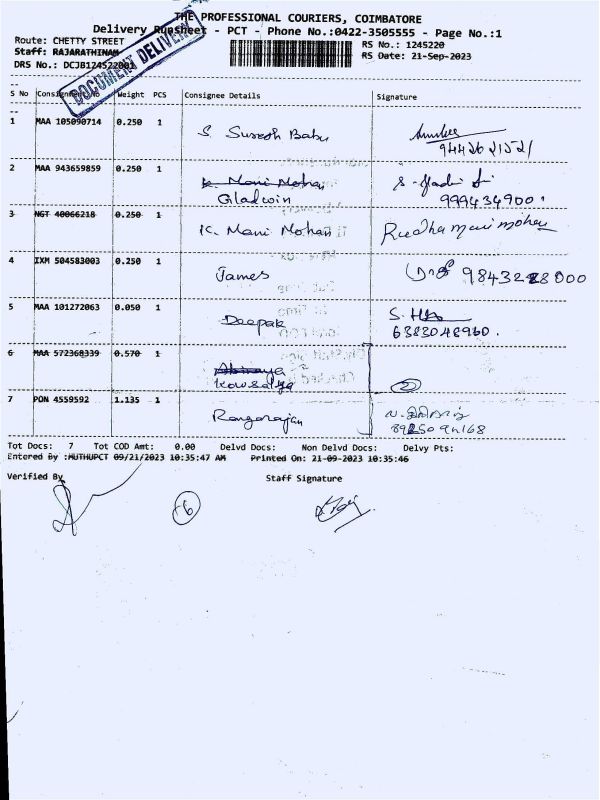 THE PROFESSIONAL COURIERS, COIMBATORE
Delivery Runsheet - PCT - Phone No.:0422-3505555 - Page No.:1
Route: CHETTY STREET
RS No.: 1245220
Staff: RAJARATHINAM
RS Date: 21-Sep-2023
DRS No.: DCJB124522001
DOCUMENT DELIVERY
S No Consignment No Weight PCS Consignee Details Signature
1 MAA 105090714 0.250 1 S. Suresh Babu
9442621521
2 MAA 943659859 0.250 1 K. Mani Mohan
Gladwin 9994349001
3 NGT 40066218 0.250 1 K. Mani Mohan Radha mani mohan
4 IXM 504583003 0.250 1 James 9843228000
5 MAA 101272063 0.050 1 Deepak
6383048960.
6 MAA 572368339 0.570 1 Abinaya
Kowsalya
7 PON 4559592 1.135 1 Rangarajan
8925094168
Tot Docs: 7 Tot COD Amt: 0.00 Delvd Docs: Non Delvd Docs: Delvy Pts:
Entered By :MUTHUPCT 09/21/2023 10:35:47 AM Printed On: 21-09-2023 10:35:46
Verified By Staff Signature
6